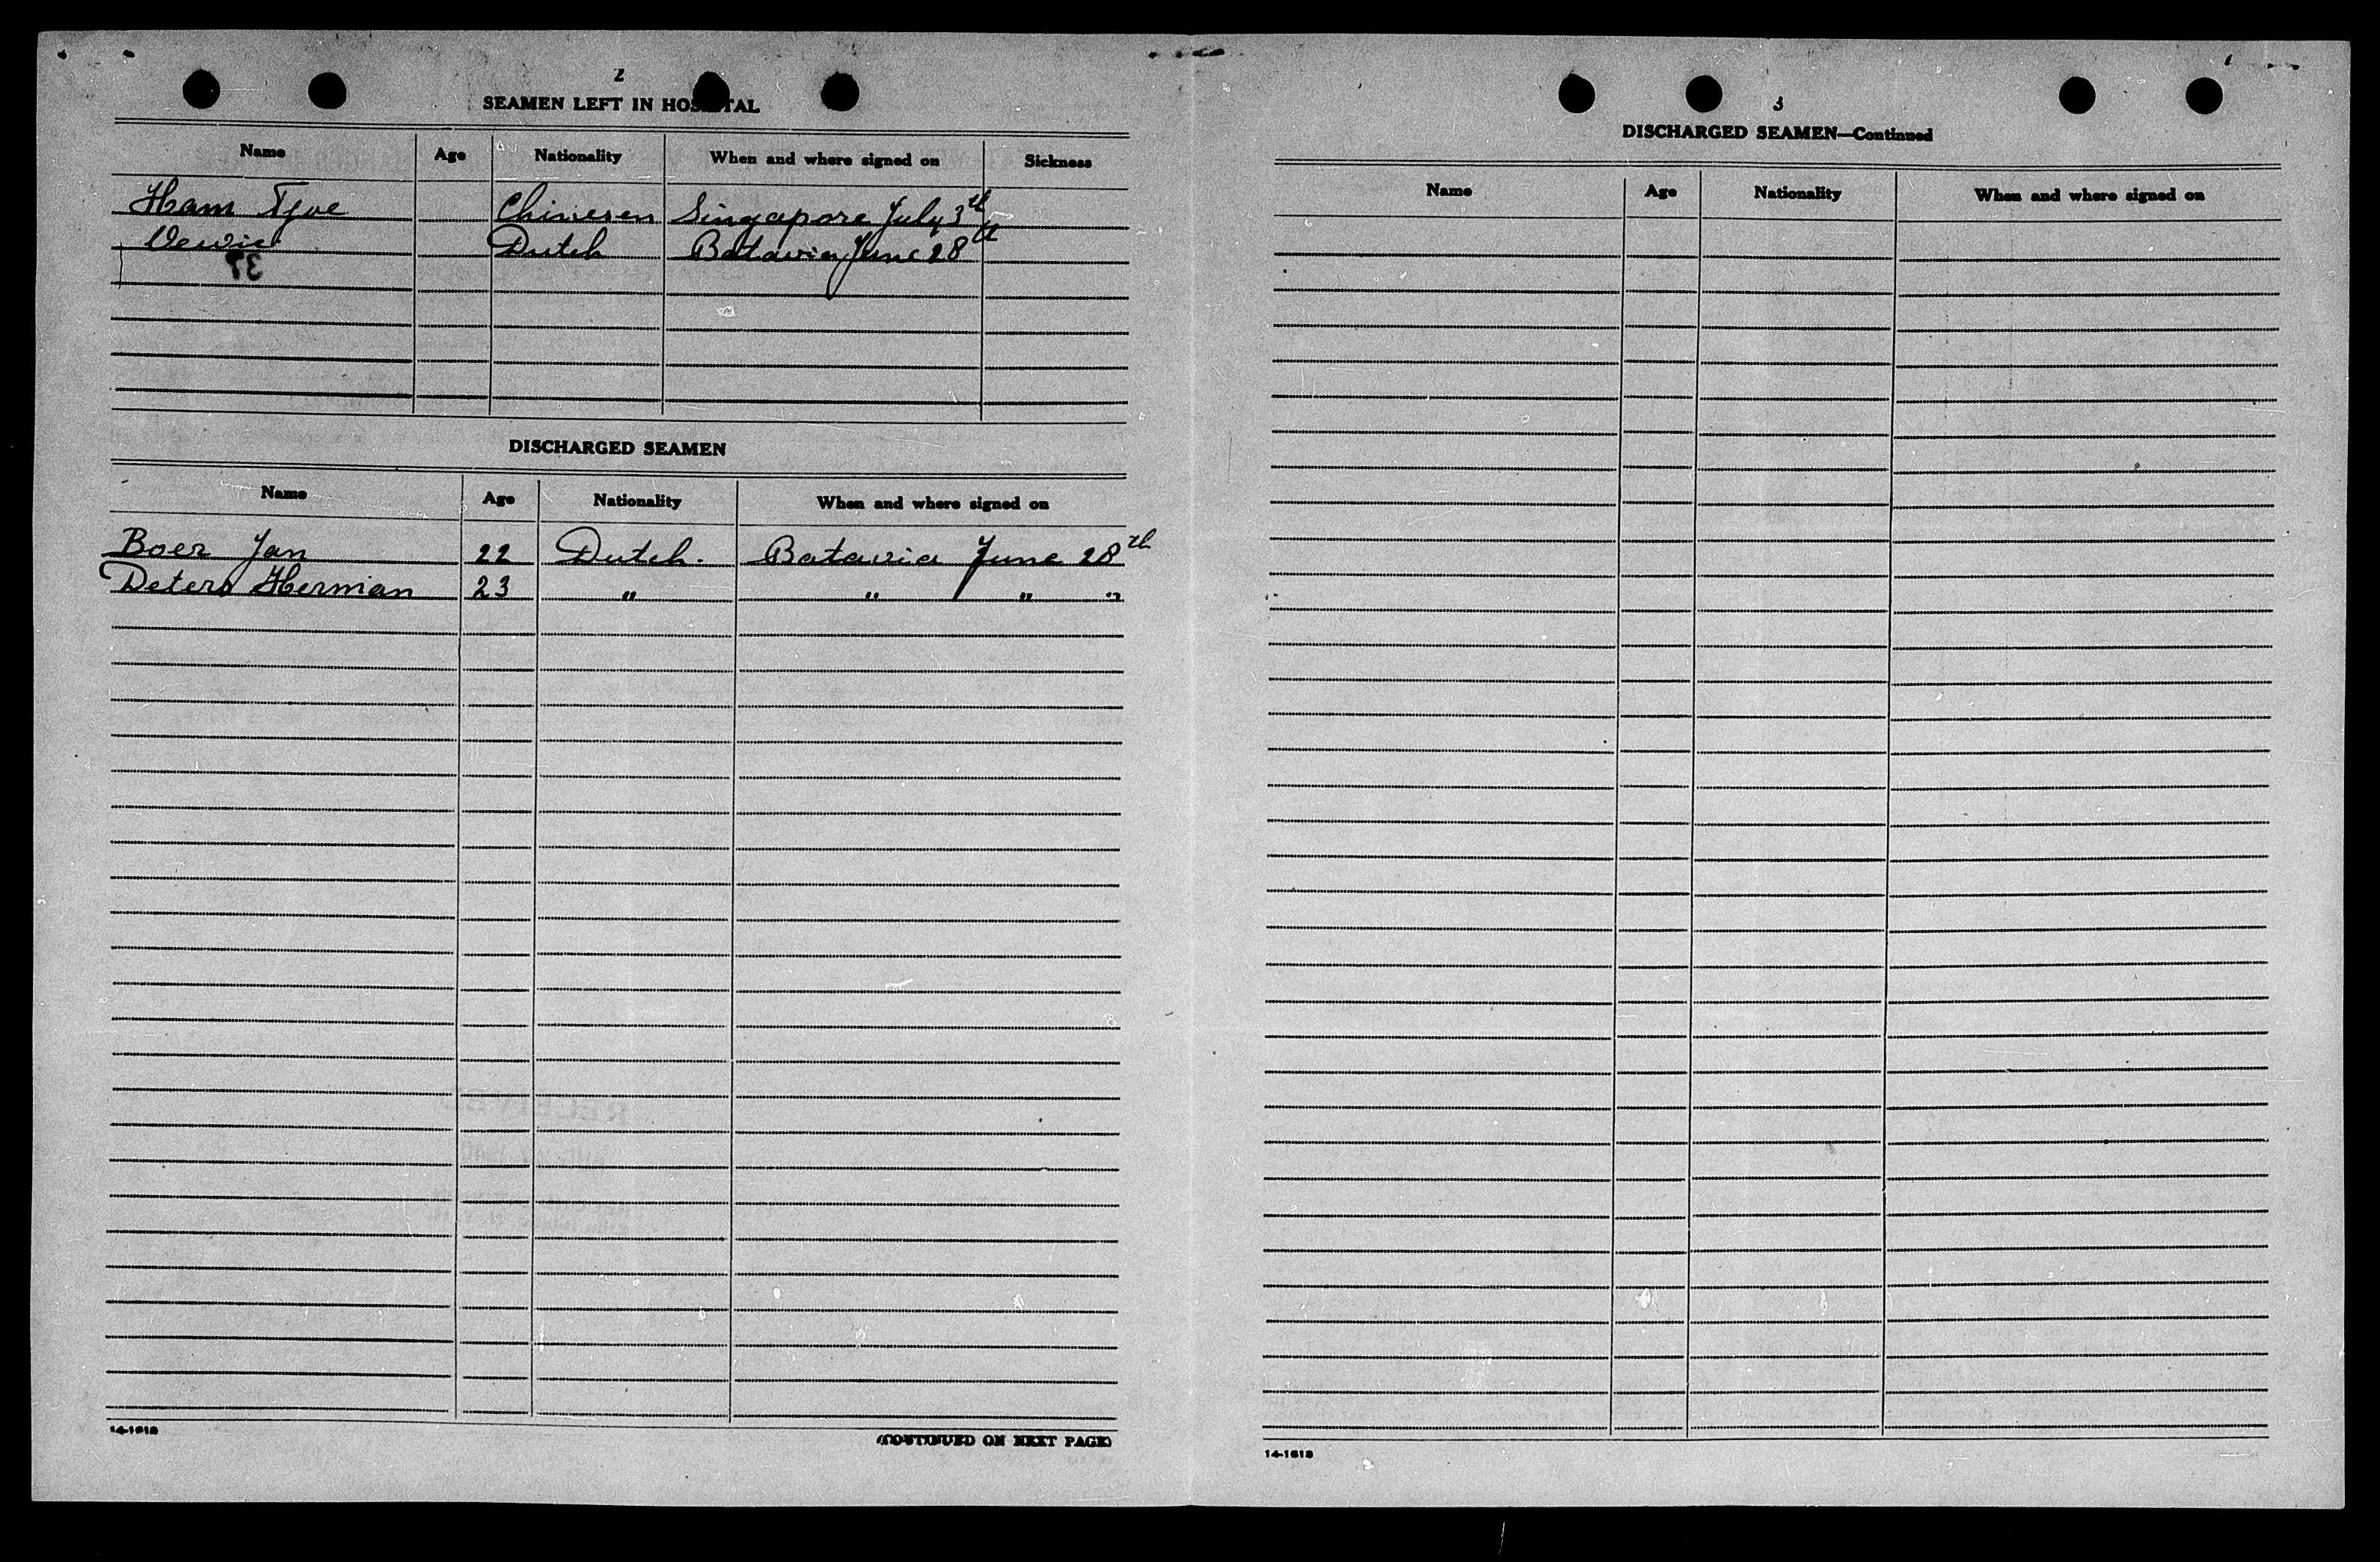 2
SEAMEN LEFT IN HOSPITAL
Name Age Nationality When and where signed on Sickness
Ham Tjoe Chinesen Singapore July 3th
Dutch Batavia June 28th
DISCHARGED SEAMEN
Name Age Nationality When and where signed on
Boer Jan 22 Dutch. Batavia June 28th
Deters Herman 23 " " " "
14-1618
(CONTINUED ON NEXT PAGE)
3
DISCHARGED SEAMEN—Continued
Name Age Nationality When and where signed on
14-1618